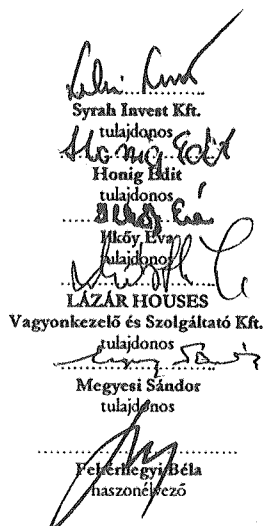 Syrah Invest Kft.
tulajdonos
Honig Edit
Honig Edit
tulajdonos
Ilkőy Éva
Ilkőy Éva
tulajdonos
LÁZÁR HOUSES
Vagyonkezelő és Szolgáltató Kft.
tulajdonos
Megyesi Sándor
tulajdonos
Fehérhegyi Béla
haszonélvező